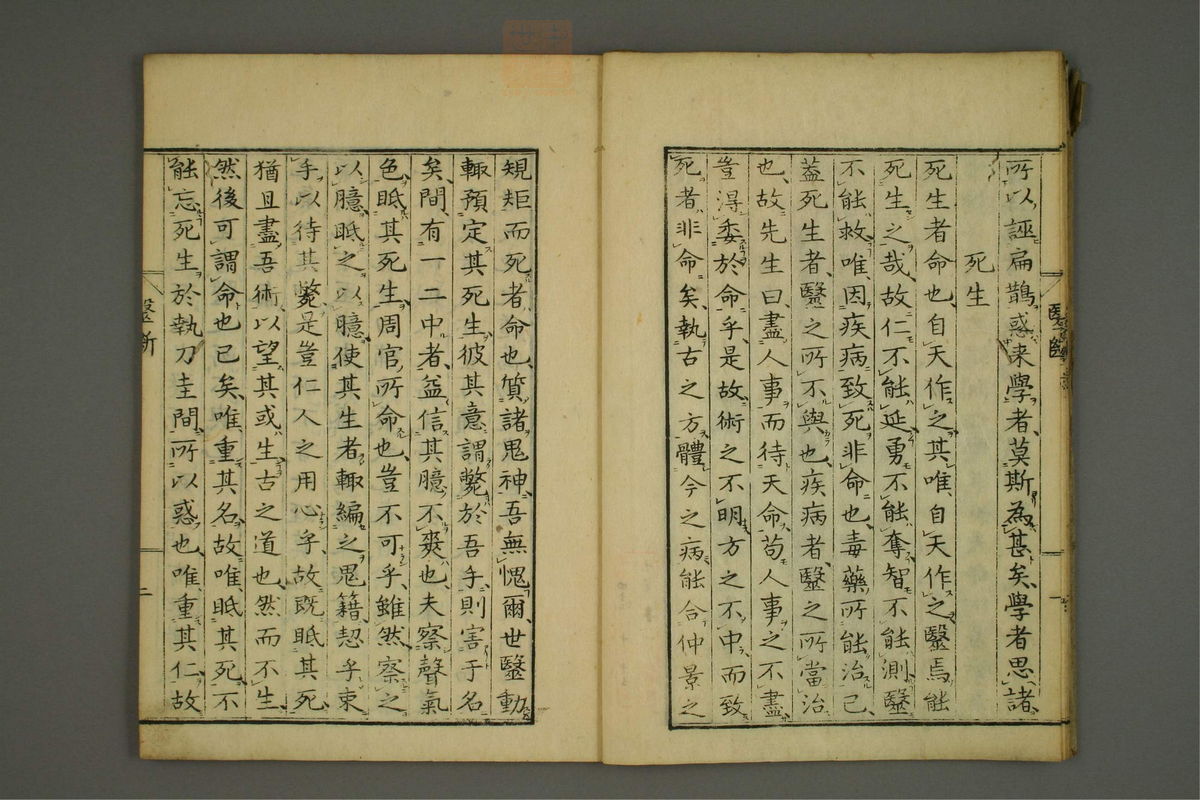 所以誣扁鵲惑来學者莫斯為甚矣學者思諸
死生
死生者命也自天作之其唯自天作之毉焉能
死生之哉故仁不能延勇不能奪智不能測毉
不能救唯因疾病致死非命也毒藥所能治已
蓋死生者毉之所不與也疾病者毉之所當治
也故先生曰盡人事而待天命苟人事之不盡
豈得委於命乎是故術之不明方之不中而致
死者非命矣執古之方體今之病能合仲景之
規矩而死者命也質諸鬼神吾無愧爾世毉動
輙預定其死生彼其意謂斃於吾手則害于名
矣間有一二中者益信其臆不爽也夫察聲氣
色眡其死生周官所命也豈不可乎雖然察之
以臆眡之以臆使其生者輙編之鬼籍恝乎束
手以待其斃是豈仁人之用心乎故既眡其死
猶且盡吾術以望其或生古之道也然而不生
然後可謂命也已矣唯重其名故唯眡其死不
能忘死生於執刀圭間所以惑也唯重其仁故
毉斷
二